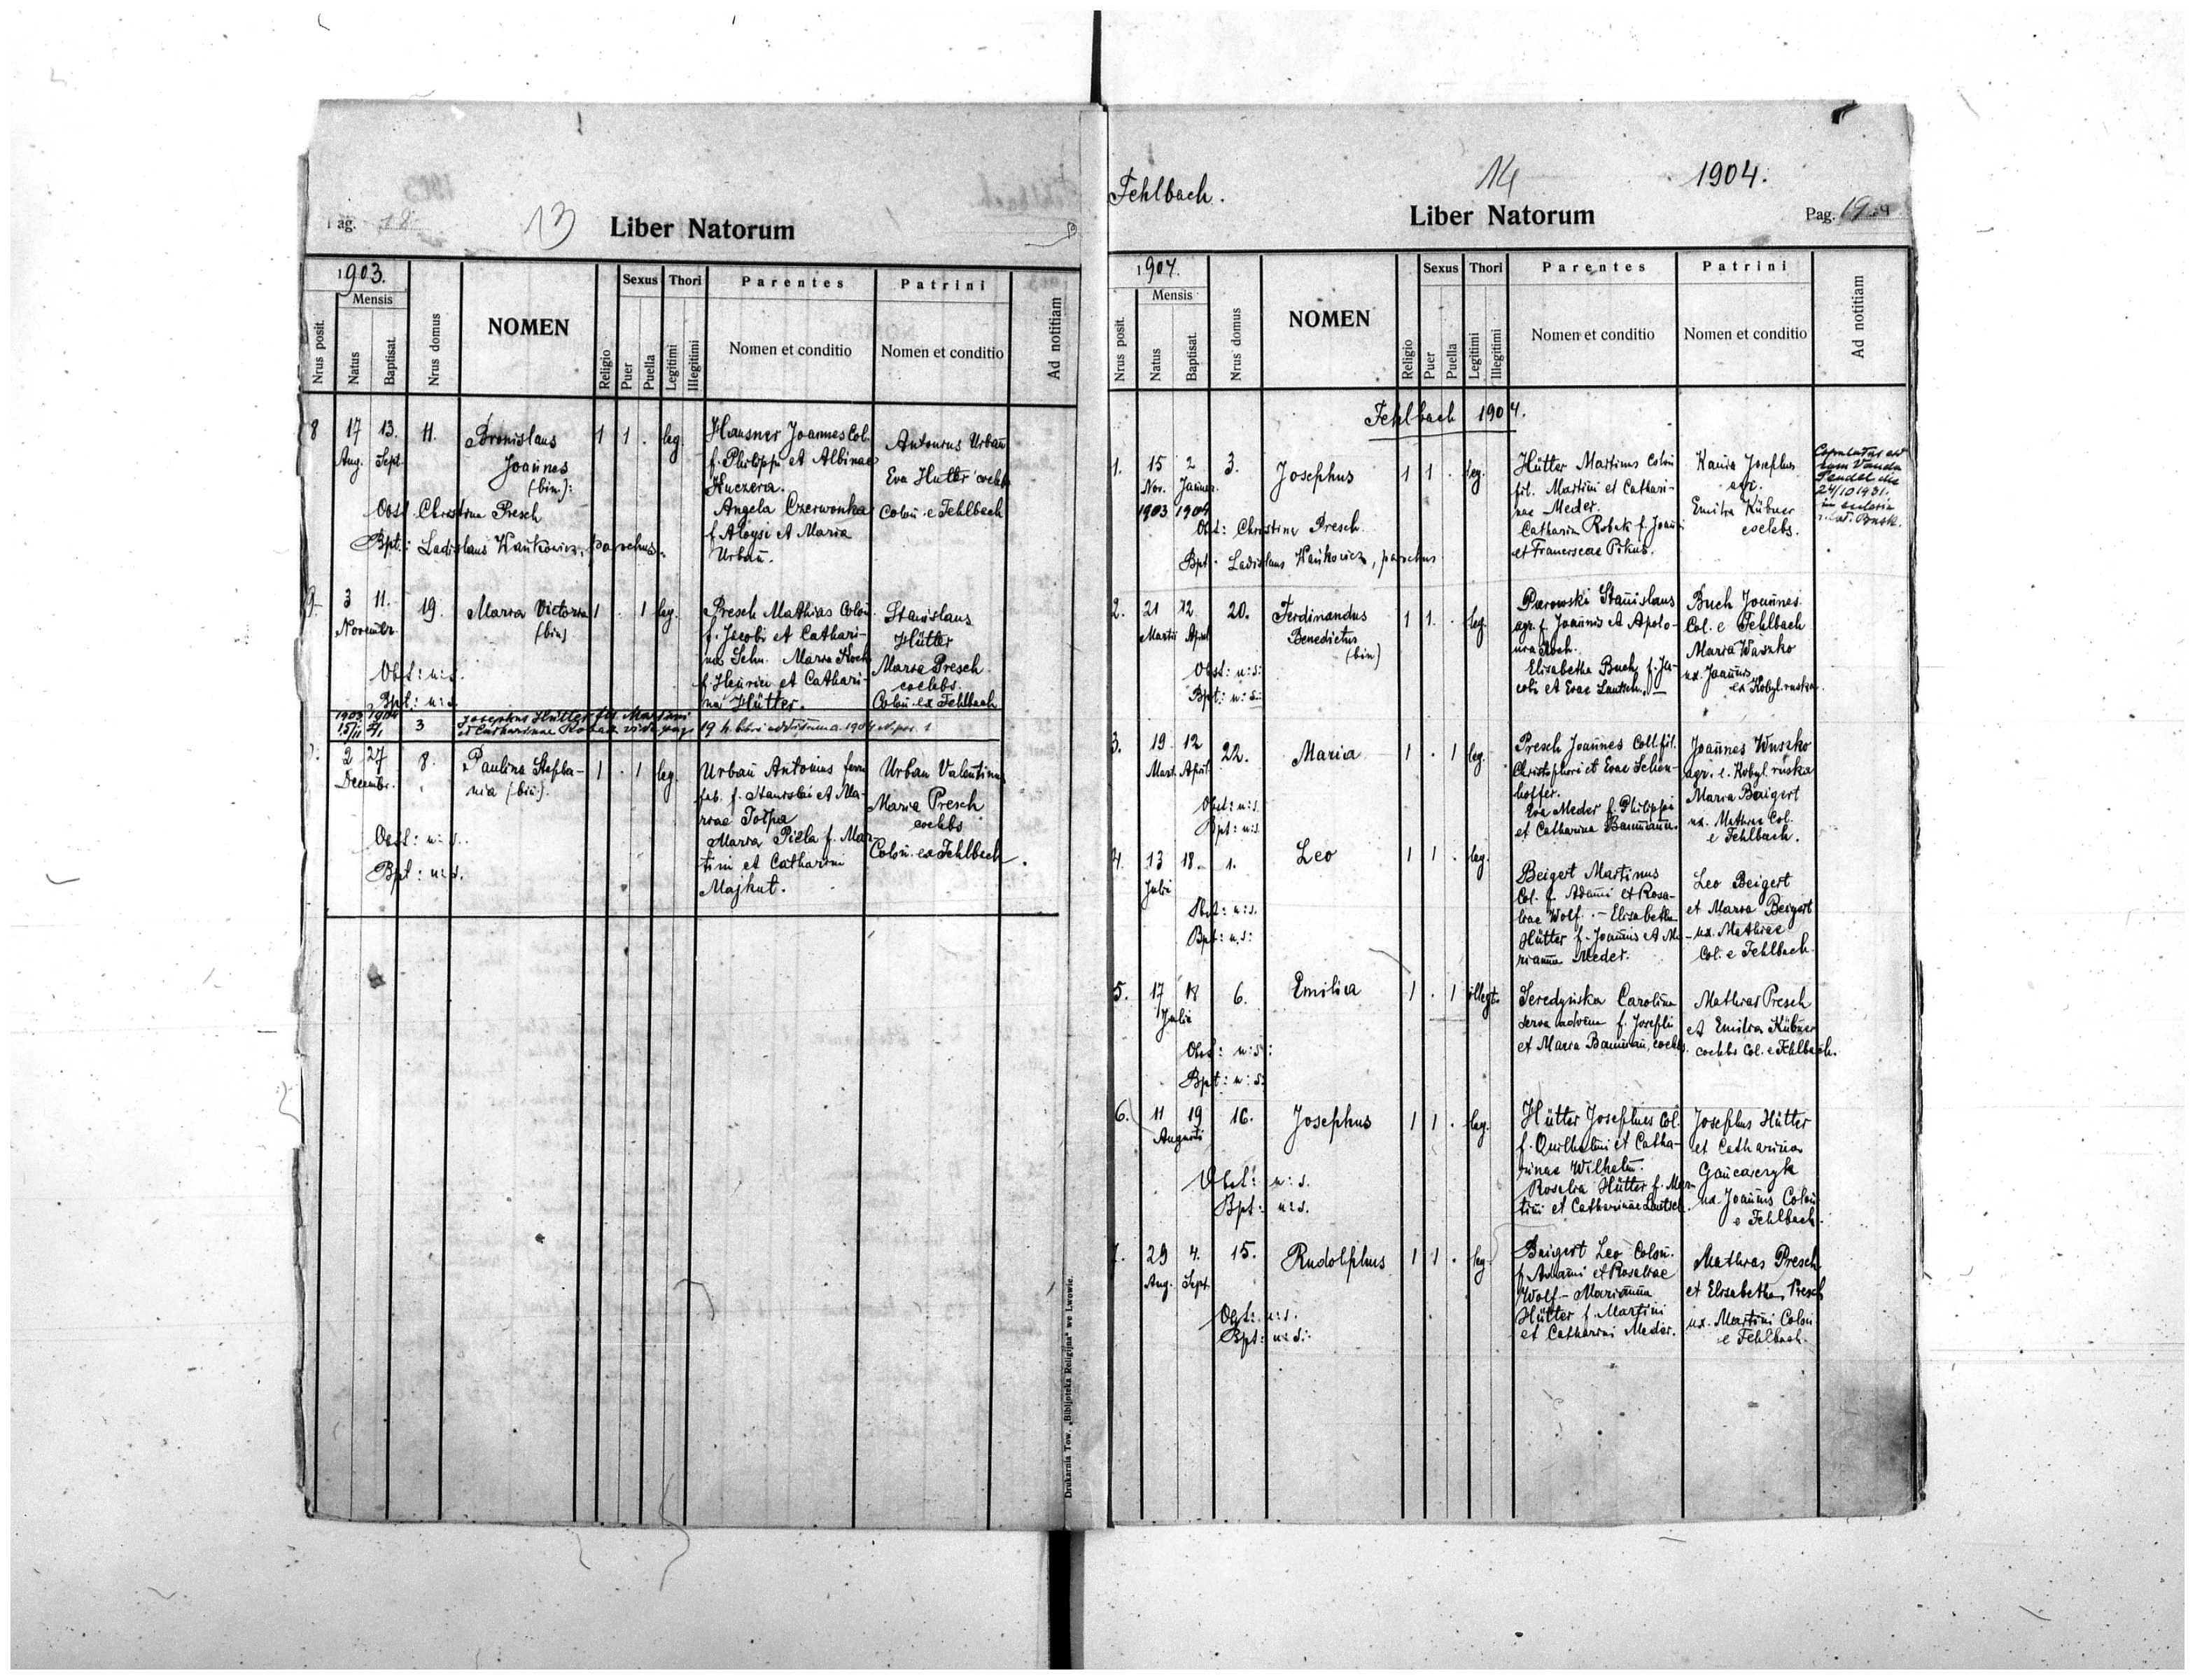 Pag. 18
13
Liber Natorum
1903.
Mensis
Nrus posit.
Natus
Baptisat.
Nrus domus
NOMEN
Religio
Sexus
Puer
Puella
Thori
Legitimi
Illegitimi
Parentes
Nomen et conditio
Patrini
Nomen et conditio
Ad notitiam
8 17 13. 11. Bronislaus 1 1 . leg.
Aug. Sept. Joannes
(bin.):
Obst. Christina Presch
Bpt.: Ladislaus Kańkowicz, parochus.
Hausner Joannes Col.
f. Philippi et Albinae
Kuczera.
Angela Czerwonka
f. Aloysi et Maria
Urban.
Antonius Urban
Eva Hutter coelebs
Colon. e Fehlbach
9. 3 11. 19. Maria Victoria 1 . 1 leg.
Novembr. (bin)
Obst: u: s.
Bpt: u: s.
Presch Mathias Colon.
f. Jacobi et Cathari-
na Sehn. Maria Koch
f. Henrici et Cathari-
na Hütter.
Stanislaus
Hütter
Maria Presch
coelebs.
Colon. ex Fehlbach
1903 1904
15/II 2/1 3 Josephus Hütter fil. Martini
et Catharinae Robak vide pag. 19 h. libri a. 1904 N. pos. 1
2 27 8. Paulina Stepha- 1 . 1 leg.
Decembr. nia (bin).
Obst: u: s.
Bpt: u: s.
Urban Antonius
fab. f. Stanislai et Ma-
riae Tolpa
Maria Piela f. Mar-
tini et Catharini
Majkut.
Urban Valentinus
Maria Presch
coelebs
Colon. ex Fehlbach
Drukarnia Tow. „Biblioteka Religijna" we Lwowie.
Fehlbach.
14
1904.
Liber Natorum
Pag. 19
1904.
Mensis
Nrus posit.
Natus
Baptisat.
Nrus domus
NOMEN
Religio
Sexus
Puer
Puella
Thori
Legitimi
Illegitimi
Parentes
Nomen et conditio
Patrini
Nomen et conditio
Ad notitiam
Fehlbach 1904.
1. 15 2 3. Josephus 1 1 . leg.
Nov. Januar.
1903 1904
Obst: Christina Presch.
Bpt. Ladislaus Kańkowicz, parochus
Hütter Martinus Colon.
fil. Martini et Cathari-
nae Meder.
Catharin Robak f. Joan.
et Franciscae Pikus.
Kania Josephus
agr.
Emilia Kübner
coelebs.
Copulatus est
cum Vanda
Pendel die
24/10 1931.
in ecclesia
Busk.
2. 21 12 20. Ferdinandus 1 1 . leg.
Martii April Benedictus
(bin)
Obst: u: s:
Bpt: u: s:
Parowski Stanislaus
agr. f. Joannis et Apolo-
nia Roch.
Elisabetha Buch f. Ja-
cobi et Evae Lautsch.
Buch Joannes
Col. e Fehlbach
Maria Waszko
ux. Joannis
ex Kobyl. ruska.
3. 19 12 22. Maria 1 . 1 leg.
Mart. April.
Obst: u: s.
Bpt: u: s.
Presch Joannes Col. fil.
Christophori et Evae Schön-
hoffer.
Eva Meder f. Philippi
et Catharina Baumann.
Joannes Wuszko
agr. e. Kobyl. ruska
Maria Baigert
ux. Mathiae Col.
e Fehlbach.
4. 13 18 1. Leo 1 1 . leg.
Julii
Obst: u: s.
Bpt: u: s:
Beigert Martinus
Col. f. Adami et Rosa-
liae Wolf. - Elisabetha
Hütter f. Joannis et Ma-
rianna Meder.
Leo Beigert
et Maria Beigert
ux. Mathiae
Col. e Fehlbach.
5. 17 18 6. Emilia 1 . 1 illegt.
Julii
Obst: u: s:
Bpt: u: s:
Seredyńska Carolina
serva f. Josephi
et Maria Bauman, coelebs.
Mathias Presch
et Emilia Kübner
coelebs Col. e Fehlbach.
6. 11 19 16. Josephus 1 1 . leg.
Augusti
Obst: u: s.
Bpt: u: s.
Hütter Josephus Col.
f. Quilhelmi et Catha-
rinae Wilhelm.
Rosalia Hütter f. Mar-
tini et Catharinae Lautsch.
Josephus Hütter
et Catharina
Gancarczyk
ux. Joannis Colon.
e Fehlbach.
7. 29 4. 15. Rudolphus 1 1 . leg.
Aug. Sept.
Obst: u: s.
Bpt: u: s.
Baigert Leo Colon.
f. Adami et Rosaliae
Wolf - Marianna
Hütter f. Martini
et Catharini Meder.
Mathias Presch
et Elisabetha Presch
ux. Martini Colon
e Fehlbach.